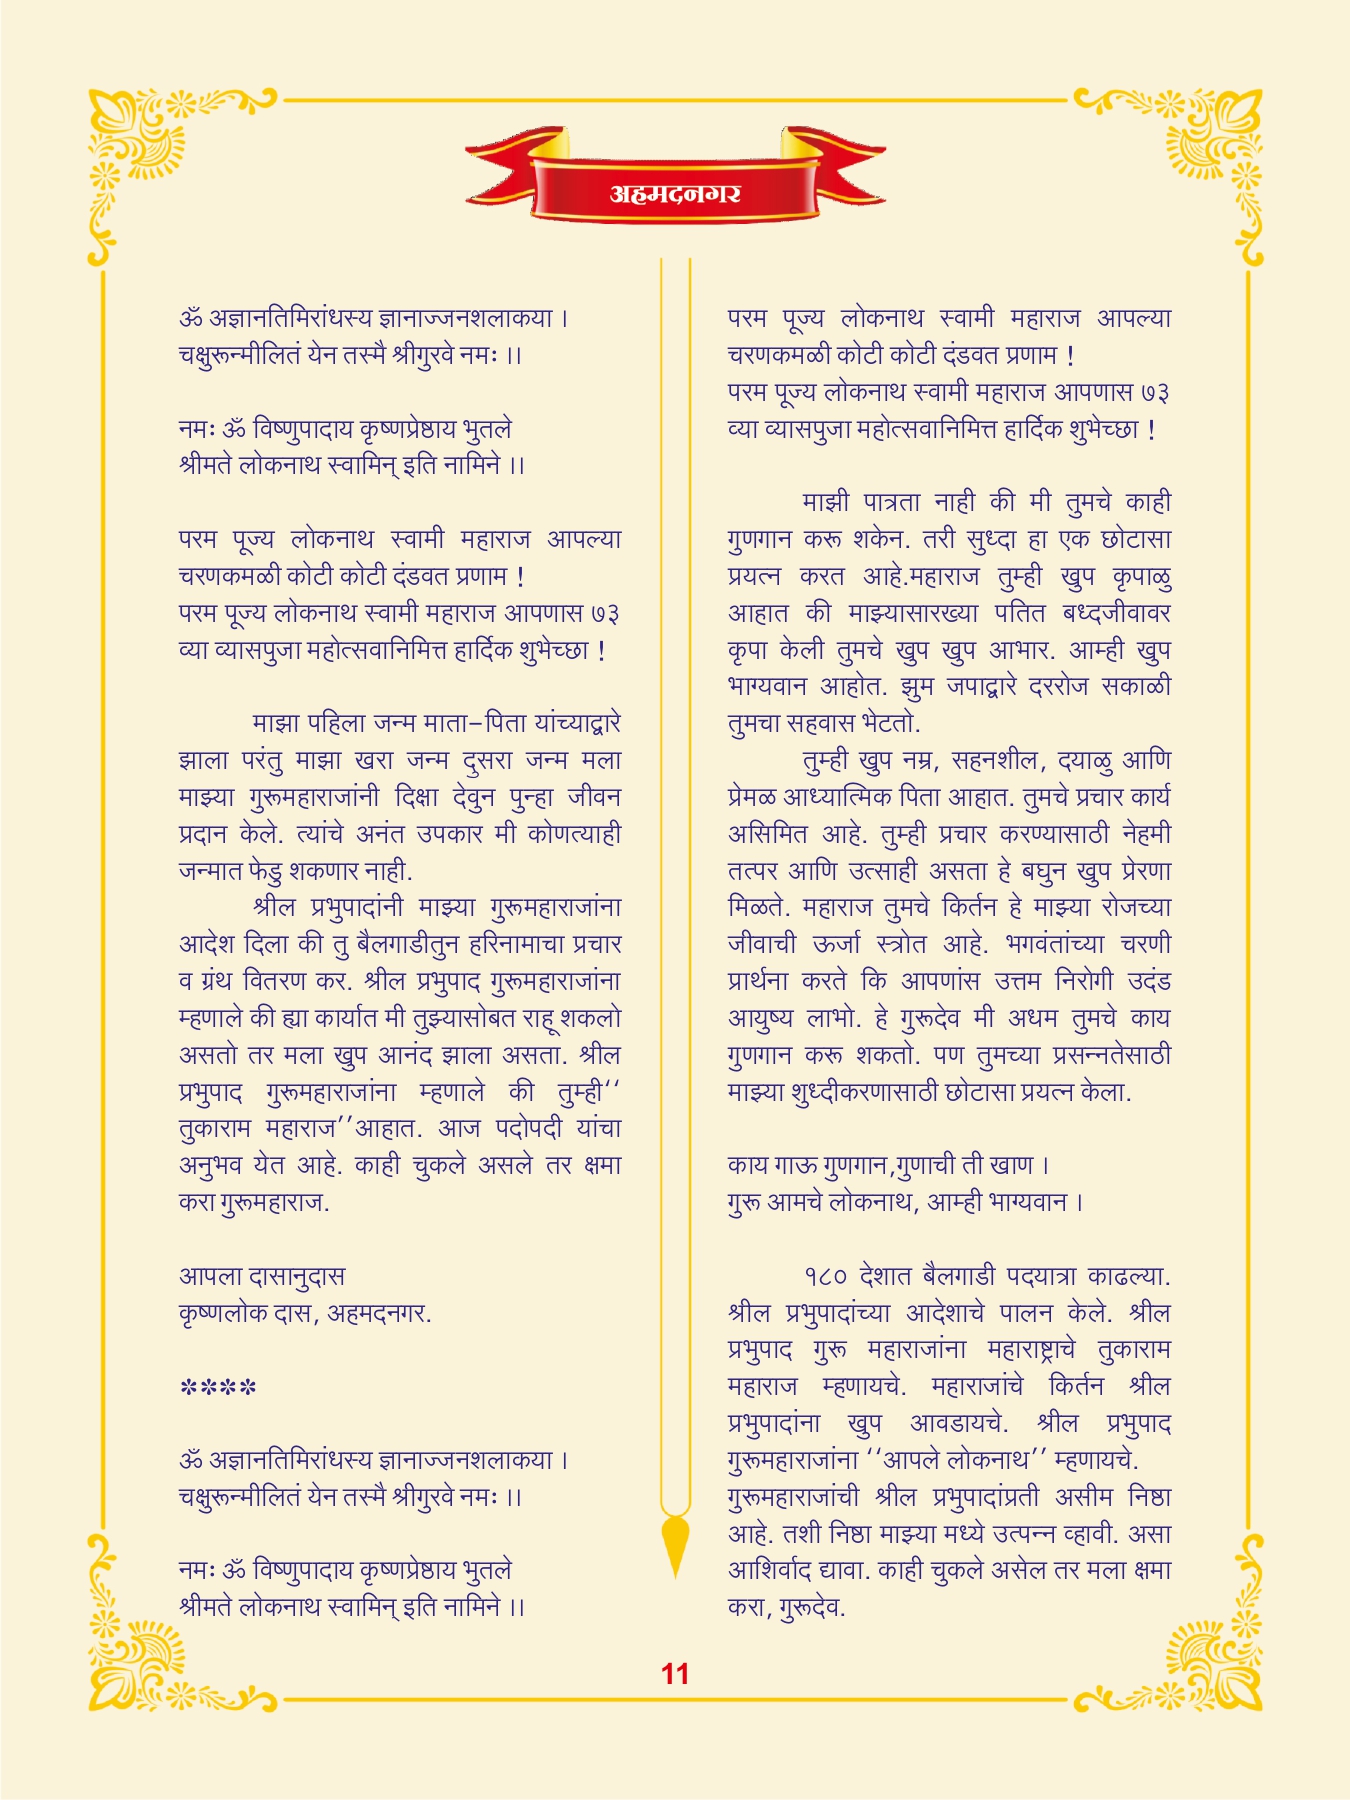 अहमदनगर
ॐ अज्ञानतिमिरांधस्य ज्ञानाज्जनशलाकया ।
चक्षुरून्मीलितं येन तस्मै श्रीगुरवे नमः ।।
नमः ॐ विष्णुपादाय कृष्णप्रेष्ठाय भुतले
श्रीमते लोकनाथ स्वामिन् इति नामिने ।।
परम पूज्य लोकनाथ स्वामी महाराज आपल्या
चरणकमळी कोटी कोटी दंडवत प्रणाम !
परम पूज्य लोकनाथ स्वामी महाराज आपणास ७३
व्या व्यासपुजा महोत्सवानिमित्त हार्दिक शुभेच्छा !
माझा पहिला जन्म माता-पिता यांच्याद्वारे
झाला परंतु माझा खरा जन्म दुसरा जन्म मला
माझ्या गुरूमहाराजांनी दिक्षा देवुन पुन्हा जीवन
प्रदान केले. त्यांचे अनंत उपकार मी कोणत्याही
जन्मात फेडु शकणार नाही.
श्रील प्रभुपादांनी माझ्या गुरूमहाराजांना
आदेश दिला की तु बैलगाडीतुन हरिनामाचा प्रचार
व ग्रंथ वितरण कर. श्रील प्रभुपाद गुरूमहाराजांना
म्हणाले की ह्या कार्यात मी तुझ्यासोबत राहू शकलो
असतो तर मला खुप आनंद झाला असता. श्रील
प्रभुपाद गुरूमहाराजांना म्हणाले की तुम्ही‘‘
तुकाराम महाराज’’आहात. आज पदोपदी यांचा
अनुभव येत आहे. काही चुकले असले तर क्षमा
करा गुरूमहाराज.
आपला दासानुदास
कृष्णलोक दास, अहमदनगर.
****
ॐ अज्ञानतिमिरांधस्य ज्ञानाज्जनशलाकया ।
चक्षुरून्मीलितं येन तस्मै श्रीगुरवे नमः ।।
नमः ॐ विष्णुपादाय कृष्णप्रेष्ठाय भुतले
श्रीमते लोकनाथ स्वामिन् इति नामिने ।।
परम पूज्य लोकनाथ स्वामी महाराज आपल्या
चरणकमळी कोटी कोटी दंडवत प्रणाम !
परम पूज्य लोकनाथ स्वामी महाराज आपणास ७३
व्या व्यासपुजा महोत्सवानिमित्त हार्दिक शुभेच्छा !
माझी पात्रता नाही की मी तुमचे काही
गुणगान करू शकेन. तरी सुध्दा हा एक छोटासा
प्रयत्न करत आहे.महाराज तुम्ही खुप कृपाळु
आहात की माझ्यासारख्या पतित बध्दजीवावर
कृपा केली तुमचे खुप खुप आभार. आम्ही खुप
भाग्यवान आहोत. झुम जपाद्वारे दररोज सकाळी
तुमचा सहवास भेटतो.
तुम्ही खुप नम्र, सहनशील, दयाळु आणि
प्रेमळ आध्यात्मिक पिता आहात. तुमचे प्रचार कार्य
असिमित आहे. तुम्ही प्रचार करण्यासाठी नेहमी
तत्पर आणि उत्साही असता हे बघुन खुप प्रेरणा
मिळते. महाराज तुमचे किर्तन हे माझ्या रोजच्या
जीवाची ऊर्जा स्त्रोत आहे. भगवंतांच्या चरणी
प्रार्थना करते कि आपणांस उत्तम निरोगी उदंड
आयुष्य लाभो. हे गुरूदेव मी अधम तुमचे काय
गुणगान करू शकतो. पण तुमच्या प्रसन्नतेसाठी
माझ्या शुध्दीकरणासाठी छोटासा प्रयत्न केला.
काय गाऊ गुणगान,गुणाची ती खाण ।
गुरू आमचे लोकनाथ, आम्ही भाग्यवान ।
१८० देशात बैलगाडी पदयात्रा काढल्या.
श्रील प्रभुपादांच्या आदेशाचे पालन केले. श्रील
प्रभुपाद गुरू महाराजांना महाराष्ट्राचे तुकाराम
महाराज म्हणायचे. महाराजांचे किर्तन श्रील
प्रभुपादांना खुप आवडायचे. श्रील प्रभुपाद
गुरूमहाराजांना ‘‘आपले लोकनाथ’’ म्हणायचे.
गुरूमहाराजांची श्रील प्रभुपादांप्रती असीम निष्ठा
आहे. तशी निष्ठा माझ्या मध्ये उत्पन्न व्हावी. असा
आशिर्वाद द्यावा. काही चुकले असेल तर मला क्षमा
करा, गुरूदेव.
11